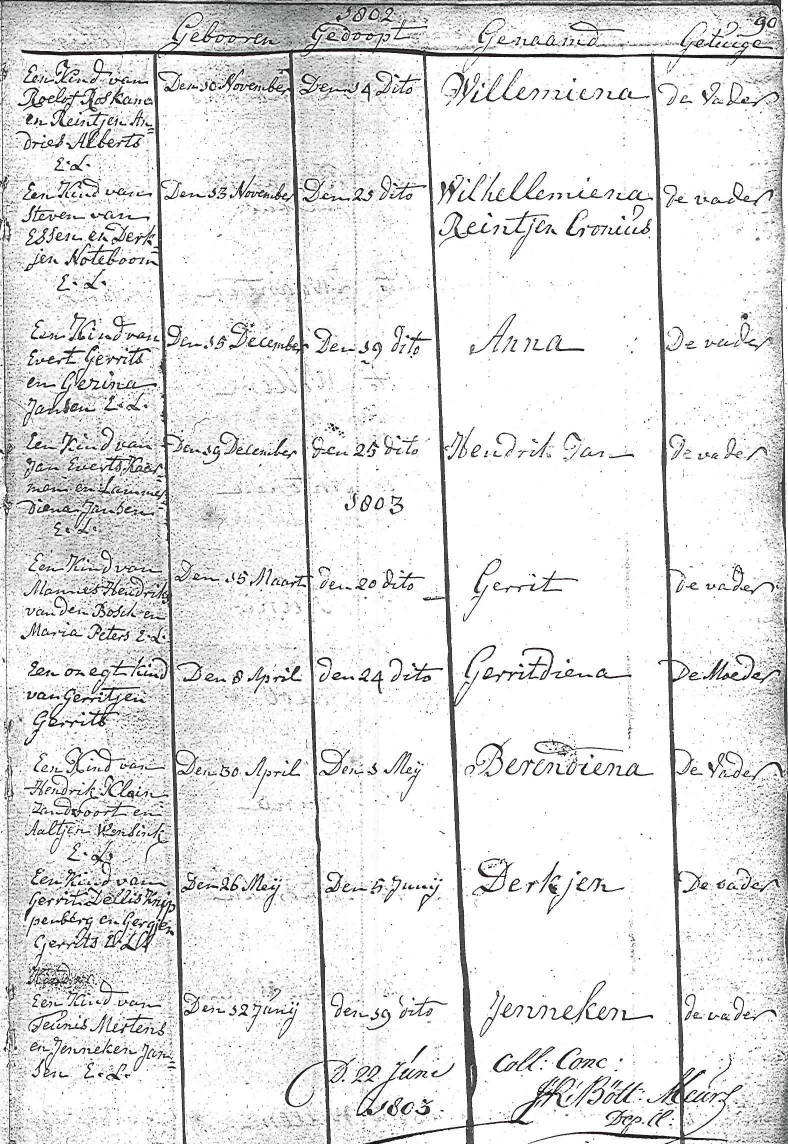 1802
90
Gebooren Gedoopt Genaamd Getuige
Een Kind van
Roelof Roskam
en Reintjen An=
dries Alberts
E. L.
Den 10 November
Den 14 dito
Willemiena
de Vader
Een Kind van
Steven van
Essen en Derk=
jen Noteboom
E. L.
Den 13 November
Den 25 dito
Wilhellemiena
Reintjen Cronius
de vader
Een Kind van
Evert Gerrits
en Gezina
Jansen E. L.
Den 15 December
Den 19 dito
Anna
De vader
Een Kind van
Jan Everts
en Lamme
diena Jansen
E. L.
Den 19 December
den 25 dito
Hendrik Jan
de vader
1803
Een Kind van
Mannes Hendriks
van den Bosch en
Maria Peters E. L.
Den 15 Maart
den 20 dito
Gerrit
de vader
Een onegt kind
van Gerritjen
Gerrits
Den 8 April
den 24 dito
Gerritdiena
De Moeder
Een Kind van
Hendrik Klein
Zandvoort en
Aaltjen
E. L.
Den 30 April
Den 1 Meij
Berendiena
De Vader
Een Kind van
Gerrit Dellis Knip
penberg en Gergjen
Gerrits
Den 26 Meij
Den 5 Junij
Derkjen
De vader
Een Kind van
Teunis Mertens
en Jenneken Jan=
sen E. L.
Den 12 Junij
den 19 dito
Jenneken
de vader
D. 22 June
1803
Coll: Conc:
Dep. Cl.